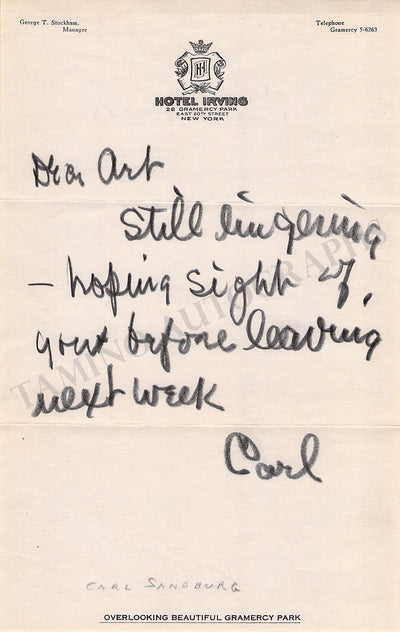 George T. Stockham,
Manager
Telephone
Gramercy 5-6263
HOTEL IRVING
26 GRAMERCY PARK
EAST 20TH STREET
NEW YORK
Dear Art
Still lingering
— hoping sight of
you before leaving
next week
Carl
CARL SANDBURG
OVERLOOKING BEAUTIFUL GRAMERCY PARK
TAMINO AUTOGRAPHS